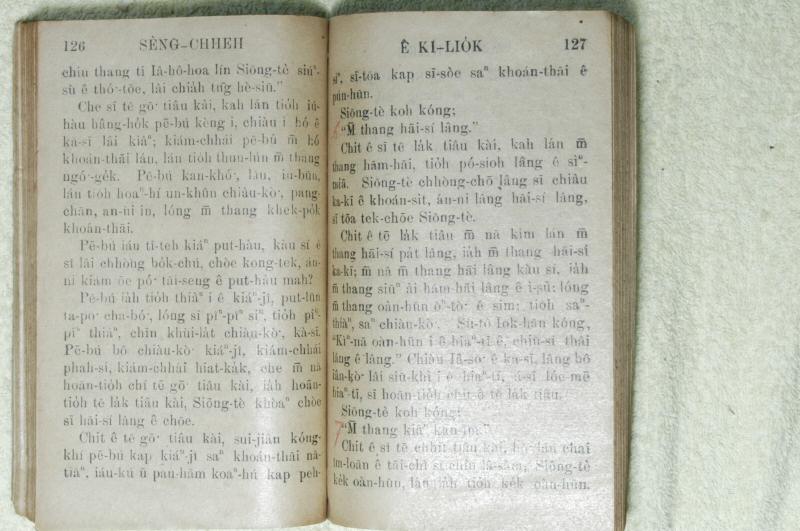 126 SÈNG-CHHEH
chiu thang tī Iâ-hô-hoa lín Siōng-tè siúⁿ-
sù ê thó͘-tōe, lâi chia̍h tn̂g hè-siū."
Che sī tē gō͘ tiâu kài, kah lán tio̍h iú-
hàu hâng-ho̍k pē-bú kèng i, chiàu i hó ê
ka-sī lâi kiâⁿ; kiám-chhái pē-bú m̄ hó
khoán-thāi lán, lán tio̍h thun-lún m̄ thang
ngó͘-ge̍k. Pē-bú kan-khó͘, lāu, iu-būn,
lán tio̍h hoaⁿ-hí un-khûn chiàu-kò͘, pang-
chān, an-ni in, lóng m̄ thang khek-po̍k
khoán-thāi.
Pē-bú iáu tī-teh kiáⁿ put-hàu, kàu sí ê
sî lâi chhòng bo̍k-chú, chòe kong-tek, án-
ni kiám ōe pó͘ tāi-seng ê put-hàu mah?
Pē-bú ia̍h tio̍h thiàⁿ i ê kiáⁿ-jî, put-lūn
ta-po͘ cha-bó͘, lóng sī pîⁿ-pîⁿ siⁿ, tio̍h pîⁿ-
pîⁿ thiàⁿ, chīn khùi-la̍t chiàu-kò͘, kà-sī.
Pē-bú bô chiàu-kò͘ kiáⁿ-jî, kiám-chhái
phah-sí, kiám-chhái hiat-ka̍k, che m̄ nā
hoān-tio̍h chí tē gō͘ tiâu kài, ia̍h hoān-
tio̍h tē la̍k tiâu kài, Siōng-tè khòaⁿ chòe
sī hāi-sí lâng ê chōe.
Chit ê tē gō͘ tiâu kài, sui-jiân kóng-
khí pē-bú kap kiáⁿ-jî saⁿ khoán-thāi nā-
tiāⁿ, iáu-kú ū pau-hâm koaⁿ-hú kap peh-
Ê KÌ-LIO̍K 127
sìⁿ, sī-tōa kap sī-sòe saⁿ khoán-thāi ê
pún-hūn.
Siōng-tè koh kóng;
"M̄ thang hāi-sí lâng."
Chit ê sī tē la̍k tiâu kài, kah lán m̄
thang hām-hāi, tio̍h pó-sioh lâng ê sìⁿ-
miā. Siōng-tè chhòng-chō lâng sī chiàu
ka-kī ê khoán-sit, án-ni lâng hāi-sí lâng,
sī tōa tek-chōe Siōng-tè.
Chit ê tē la̍k tiâu m̄ nā kìm lán m̄
thang hāi-sí pa̍t lâng, ia̍h m̄ thang hāi-sí
ka-kī; m̄ nā m̄ thang hāi lâng kàu sí, ia̍h
m̄ thang siūⁿ ài hām-hāi lâng ê ì-sù; lóng
m̄ thang oàn-hūn òⁿ-tò͘ ê sim; tio̍h saⁿ-
thiàⁿ, saⁿ chiàu-kò͘. Sù-tô Iok-hān kóng,
"Kìⁿ-nā oàn-hūn i ê hiaⁿ-tī ê, chiū-sī thâi
lâng ê lâng." Chiàu Iâ-so͘ ê kà-sī, lâng bô
iân-kò͘ lâi siū-khì i ê hiaⁿ-tī, á-sī lóe-mē
hiaⁿ-tī, sī hoān-tio̍h chit ê tē la̍k tiâu.
Siōng-tè koh kóng;
"M̄ thang kiâⁿ kan-îm."
Chit ê sī tē chhit tiâu kài, hō͘ lán chai
îm-loān ê tāi-chì sī chīn lâ-sâm, Siōng-tè
ke̍k oàn-hūn, lán ia̍h tio̍h ke̍k oàn-hūn.